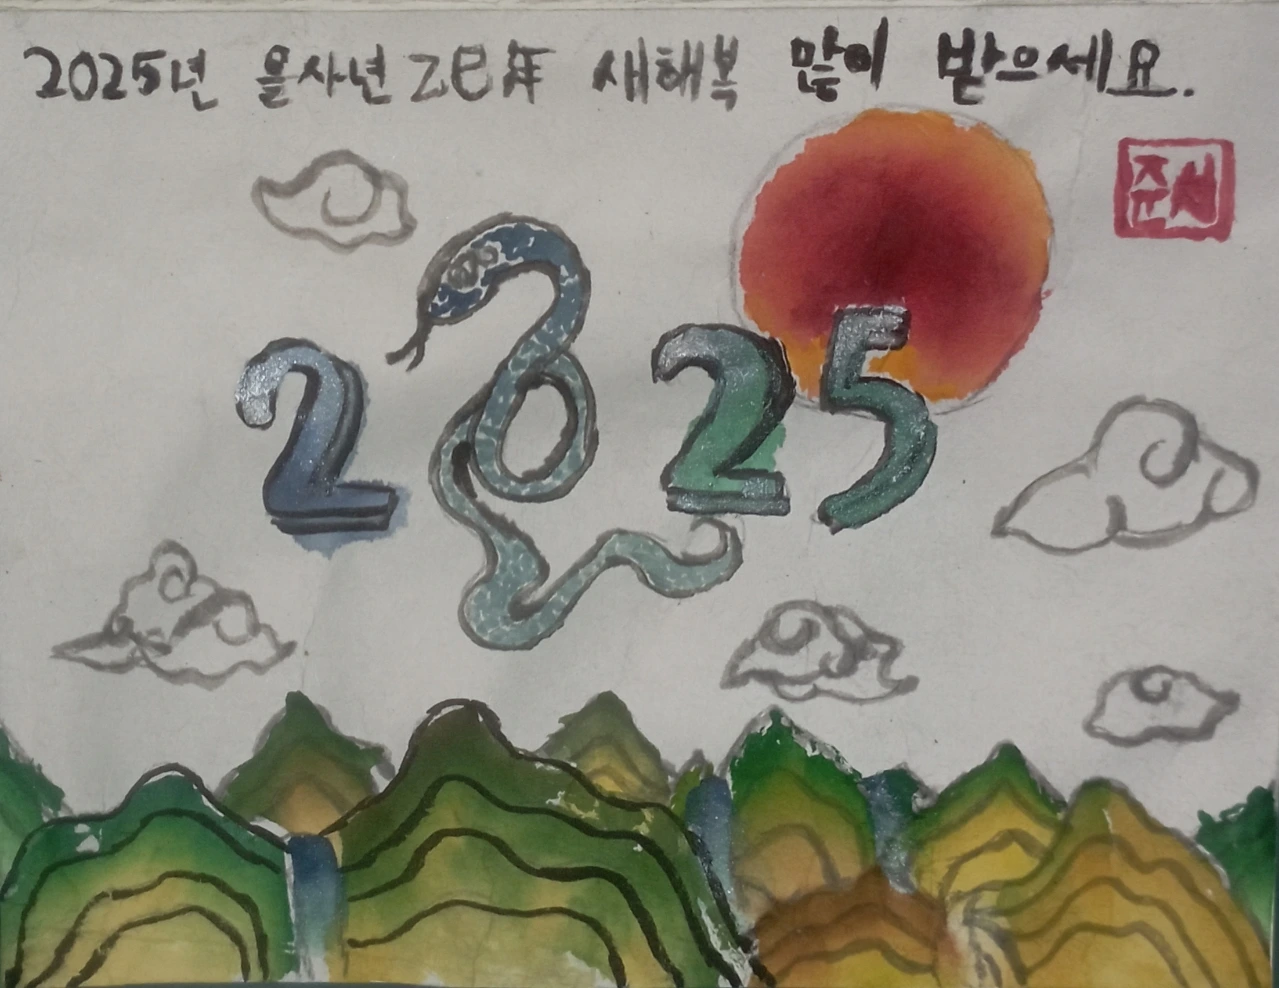 2025년 을사년 乙巳年 새해복 많이 받으세요.
2025